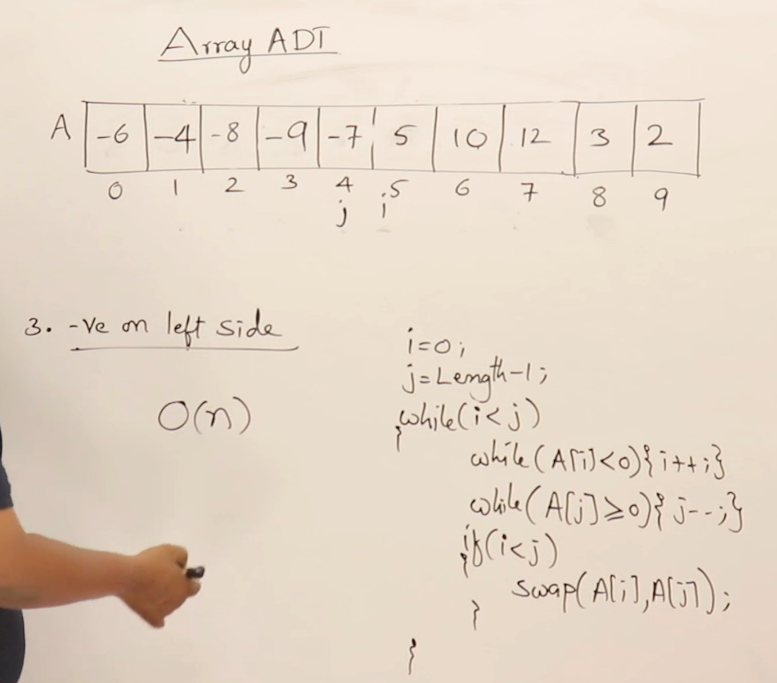 Array ADT
A -6 -4 -8 -9 -7 5 10 12 3 2
0 1 2 3 4 5 6 7 8 9
j i
3. -ve on left side
O(n)
i=0;
j=Length-1;
while(i<j)
{
while(A[i]<0){i++;}
while(A[j]≥0){j--;}
if(i<j)
{
swap(A[i],A[j]);
}
}